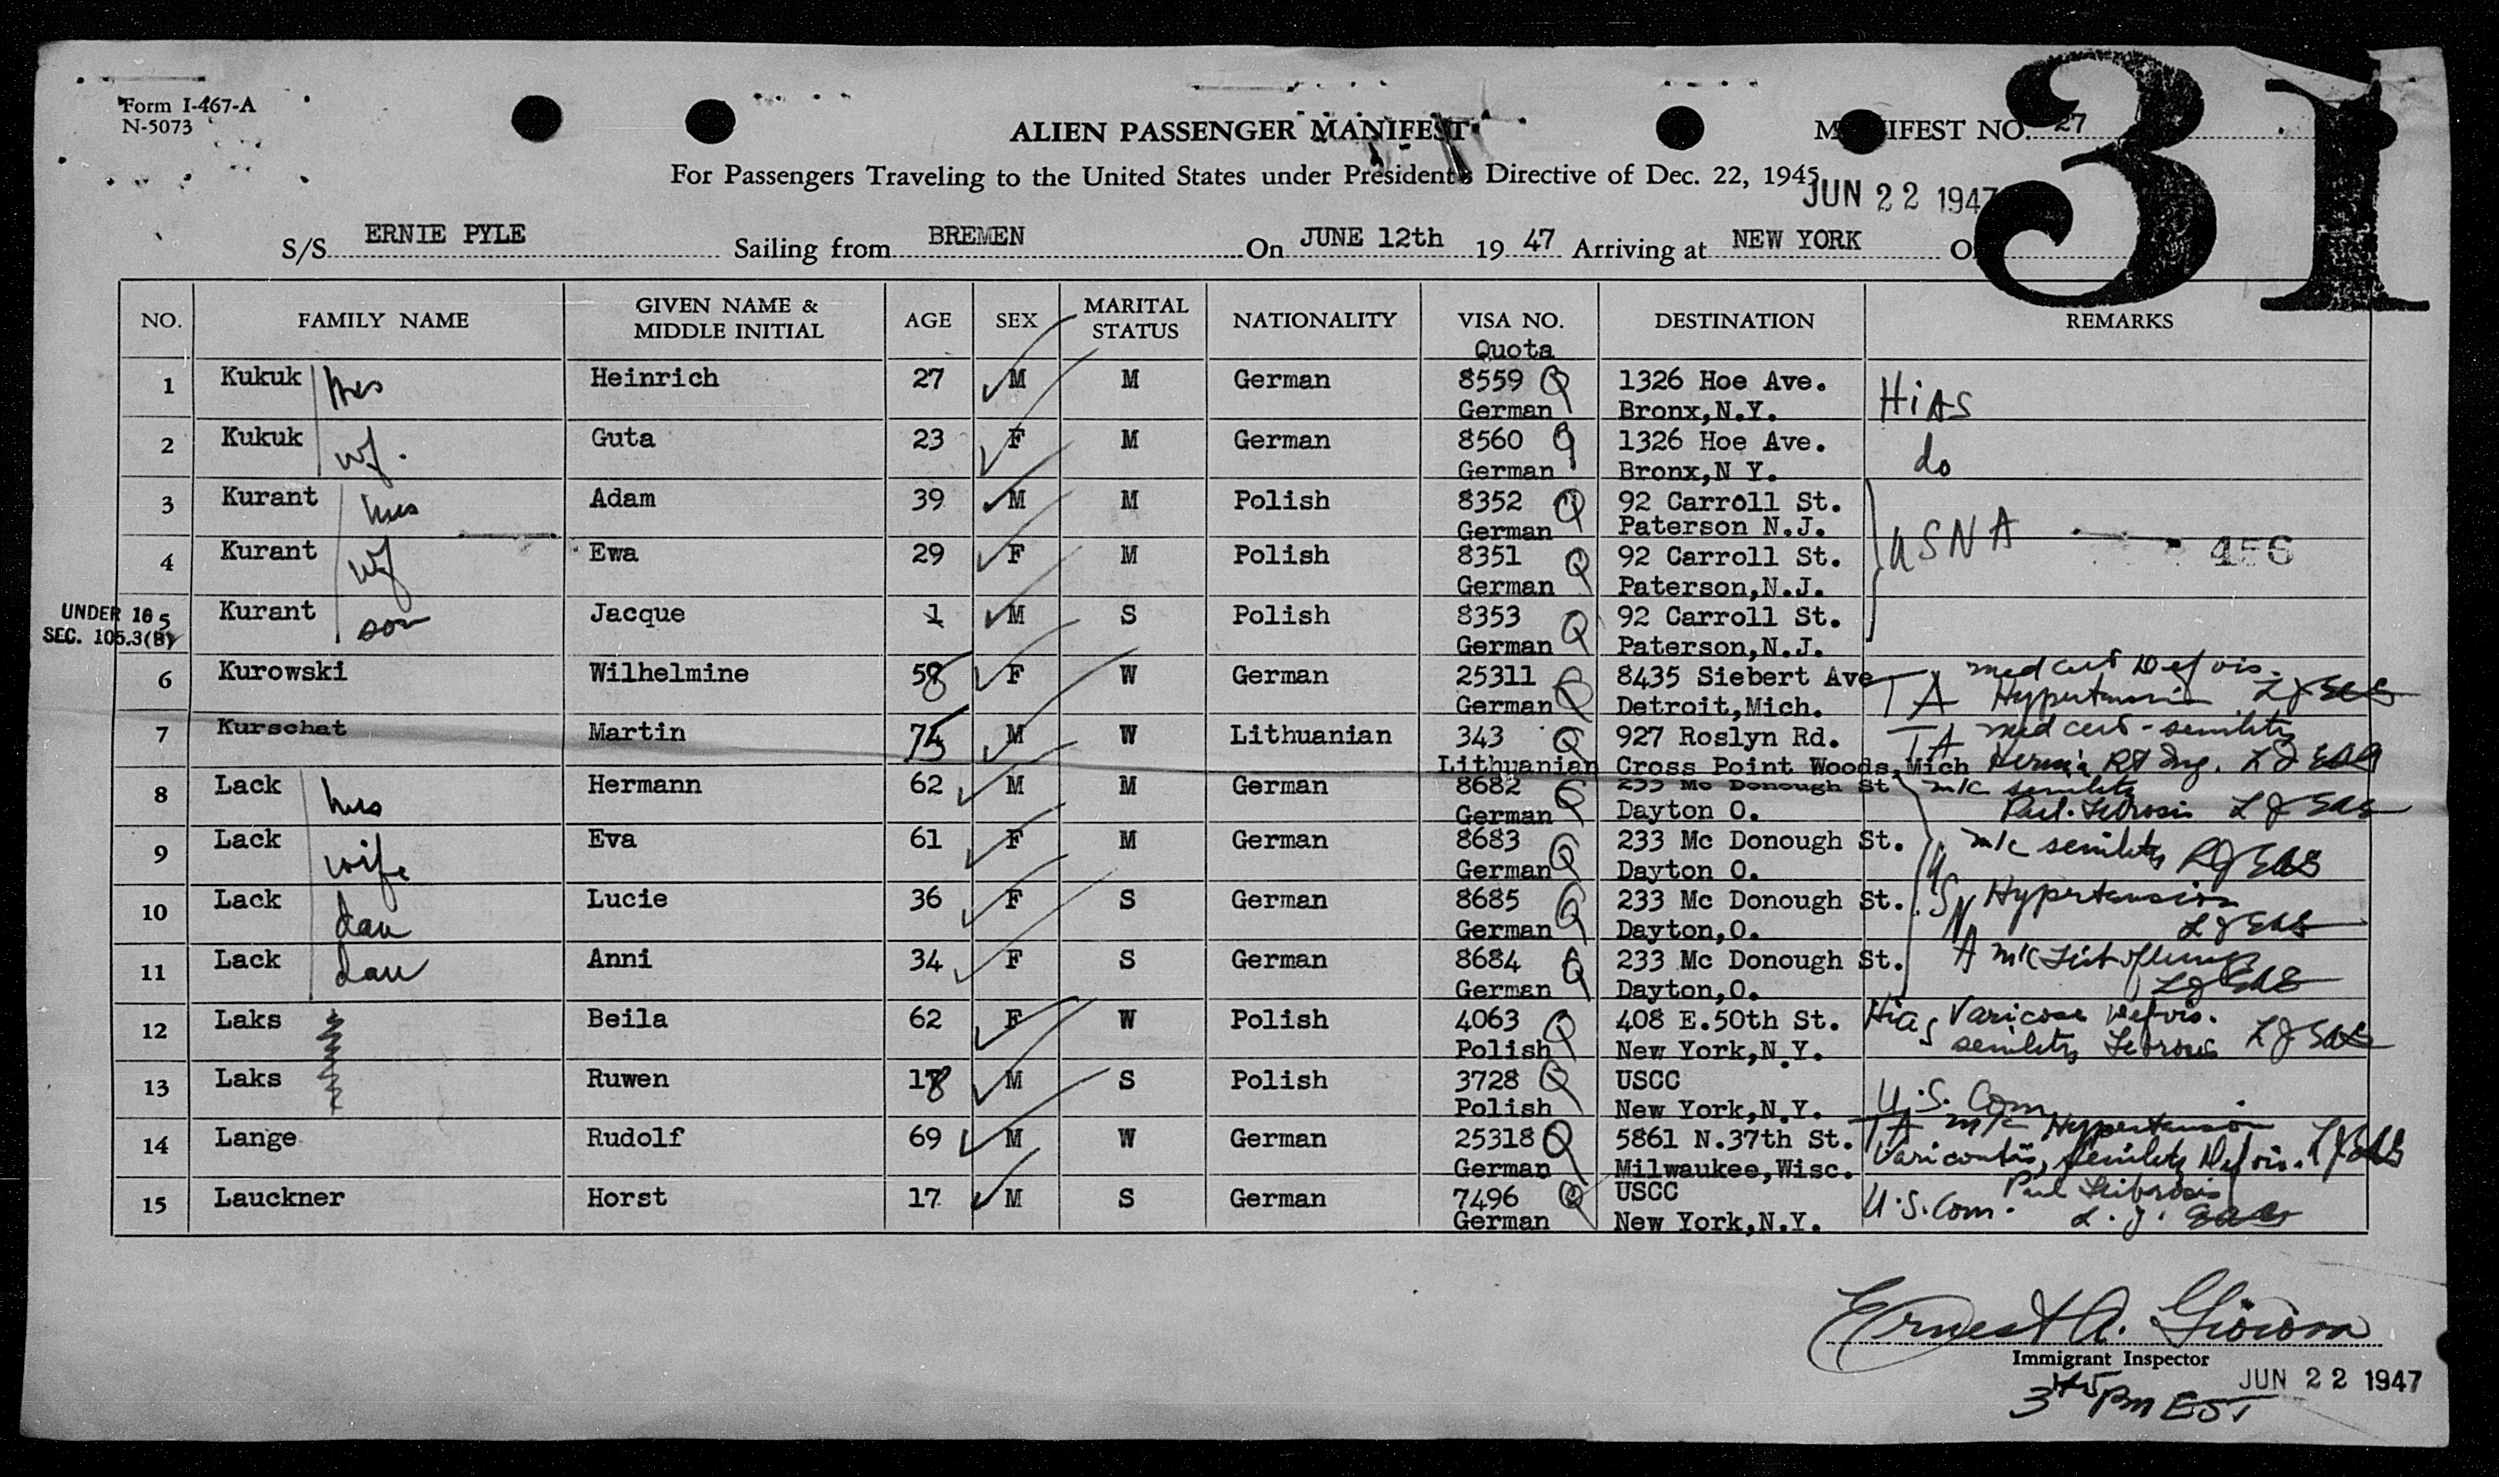 Form I-467-A
N-5073
31
ALIEN PASSENGER MANIFEST
MANIFEST NO. 27
For Passengers Traveling to the United States under President's Directive of Dec. 22, 1945
JUN 22 1947
S/S ERNIE PYLE Sailing from BREMEN On JUNE 12th 19 47 Arriving at NEW YORK
NO. FAMILY NAME GIVEN NAME & MIDDLE INITIAL AGE SEX MARITAL STATUS NATIONALITY VISA NO. DESTINATION REMARKS
Quota
1 Kukuk hus Heinrich 27 M M German 8559 Q 1326 Hoe Ave. HIAS
German Bronx,N.Y.
2 Kukuk wf. Guta 23 F M German 8560 Q 1326 Hoe Ave. do
German Bronx,N Y.
3 Kurant hus Adam 39 M M Polish 8352 Q 92 Carroll St.
German Paterson N.J.
USNA 456
4 Kurant wf Ewa 29 F M Polish 8351 Q 92 Carroll St.
German Paterson,N.J.
UNDER 16
SEC. 105.3(B)
5 Kurant son Jacque 1 M S Polish 8353 Q 92 Carroll St.
German Paterson,N.J.
6 Kurowski Wilhelmine 58 F W German 25311 Q 8435 Siebert Ave TA med cert Def vis.
German Detroit,Mich. Hypertension
7 Kurschat Martin 75 M W Lithuanian 343 Q 927 Roslyn Rd. TA med cert - senility
Lithuanian Cross Point Woods,Mich Hernia Rt Ing.
8 Lack hus Hermann 62 M M German 8682 Q 233 Mc Donough St m/c senility
German Dayton O.
9 Lack wife Eva 61 F M German 8683 Q 233 Mc Donough St. m/c senility
German Dayton O.
USNA
10 Lack dau Lucie 36 F S German 8685 Q 233 Mc Donough St. Hypertension
German Dayton,O.
11 Lack dau Anni 34 F S German 8684 Q 233 Mc Donough St. m/c
German Dayton,O.
12 Laks Beila 62 F W Polish 4063 Q 408 E.50th St. Hias Varicose Def vis.
Polish New York,N.Y. senility
13 Laks Ruwen 18 M S Polish 3728 Q USCC U.S. Com
Polish New York,N.Y.
14 Lange Rudolf 69 M W German 25318 Q 5861 N.37th St. TA m/c Hypertension
German Milwaukee,Wisc. senility Def vis.
15 Lauckner Horst 17 M S German 7496 Q USCC U.S. Com.
German New York,N.Y.
Ernest A.
Immigrant Inspector
JUN 22 1947
3 45 PM EST